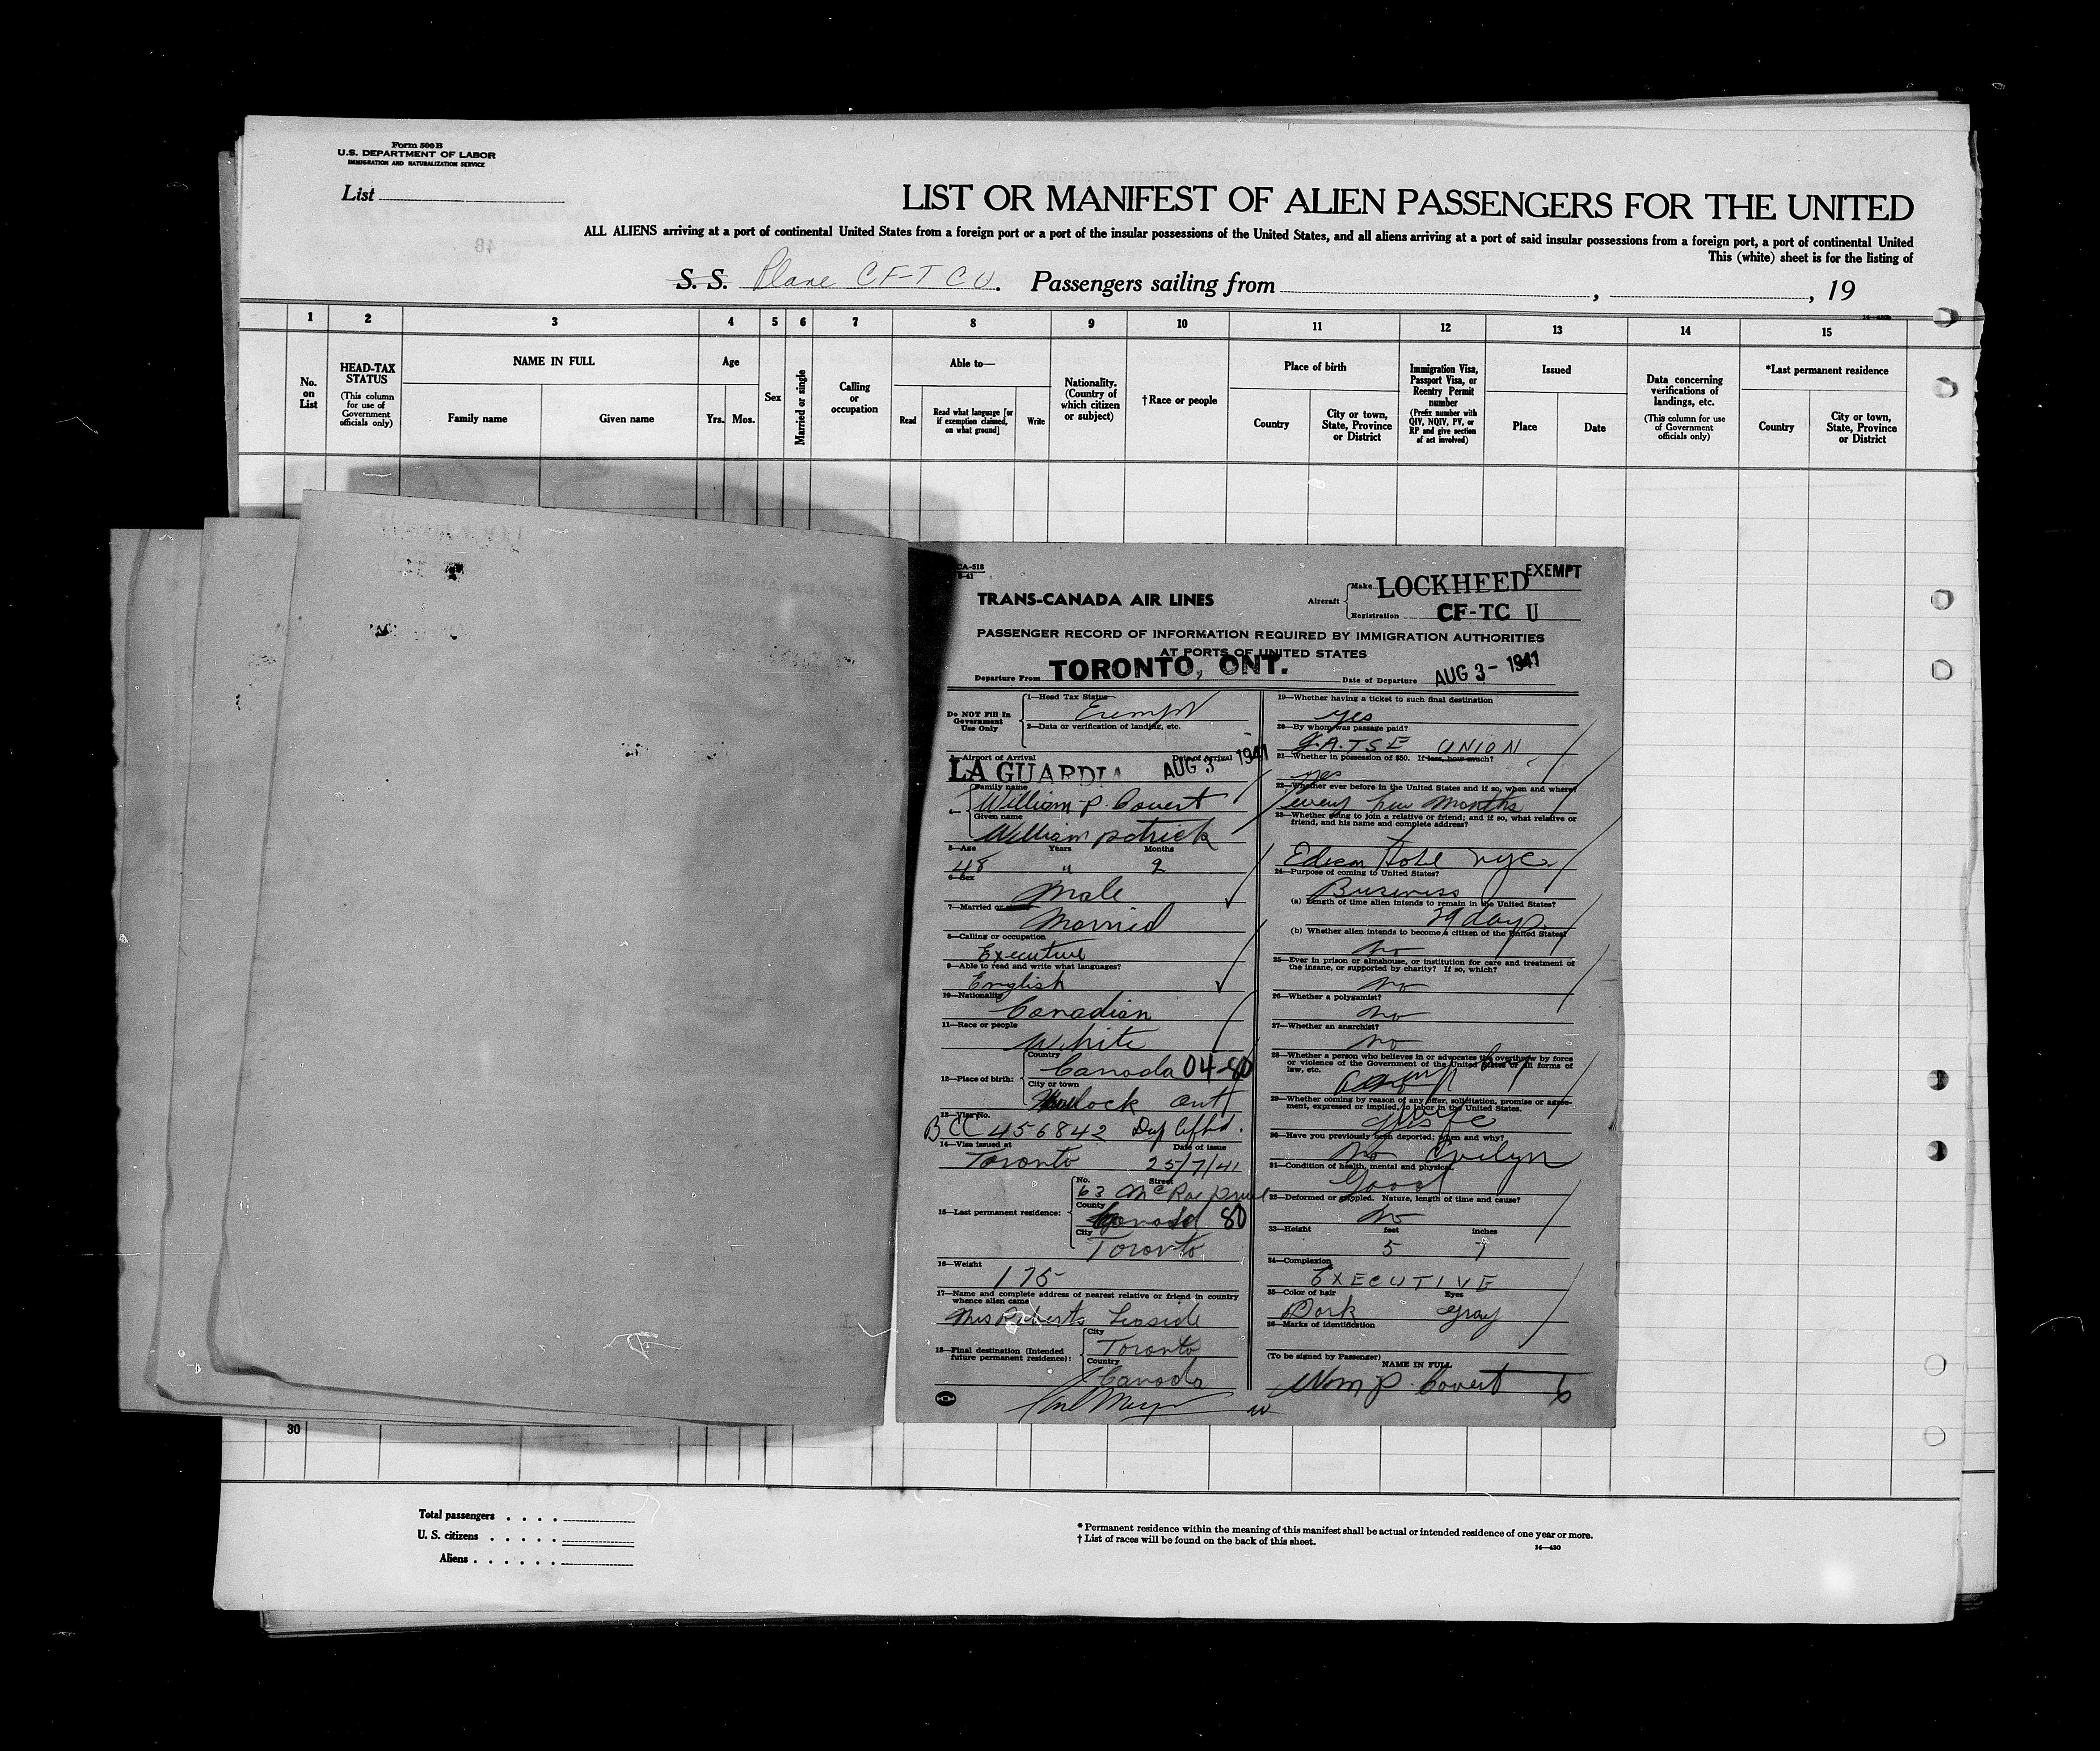 Form 500 B
U.S. DEPARTMENT OF LABOR
IMMIGRATION AND NATURALIZATION SERVICE
List
LIST OR MANIFEST OF ALIEN PASSENGERS FOR THE UNITED
ALL ALIENS arriving at a port of continental United States from a foreign port or a port of the insular possessions of the United States, and all aliens arriving at a port of said insular possessions from a foreign port, a port of continental United
This (white) sheet is for the listing of
S. S. Plane CF-TCU. Passengers sailing from , , 19
1 2 3 4 5 6 7 8 9 10 11 12 13 14 15
No. on List
HEAD-TAX STATUS (This column for use of Government officials only)
NAME IN FULL
Family name Given name
Age
Yrs. Mos.
Sex
Married or single
Calling or occupation
Able to—
Read Read what language [or if exemption claimed, on what ground] Write
Nationality. (Country of which citizen or subject)
†Race or people
Place of birth
Country City or town, State, Province or District
Immigration Visa, Passport Visa, or Reentry Permit number (Prefix number with QIV, NQIV, PV, or RP and give section of act involved)
Issued
Place Date
Data concerning verifications of landings, etc. (This column for use of Government officials only)
*Last permanent residence
Country City or town, State, Province or District
CA-518
EXEMPT
TRANS-CANADA AIR LINES
Aircraft Make LOCKHEED
Registration CF-TC U
PASSENGER RECORD OF INFORMATION REQUIRED BY IMMIGRATION AUTHORITIES
AT PORTS OF UNITED STATES
Departure From TORONTO, ONT. Date of Departure AUG 3 - 1941
Do NOT Fill In Government Use Only
1—Head Tax Status
Exempt
2—Data or verification of landing, etc.
3—Airport of Arrival Date of Arrival
LA GUARDIA AUG 3 1941
4— Family name
William P. Covert
Given name
William patrick
5—Age Years Months
48 " 2
6—Sex
Male
7—Married or single
Married
8—Calling or occupation
Executive
9—Able to read and write what languages?
English
10—Nationality
Canadian
11—Race or people
White
12—Place of birth: Country
Canada 04-80
City or town
Havelock Ont
13—Visa No.
BCC 456842
14—Visa issued at Date of issue
Toronto 25/7/41
15—Last permanent residence: No. Street
63 McRae Drive
County
Canada 80
City
Toronto
16—Weight
175
17—Name and complete address of nearest relative or friend in country
whence alien came
Mrs Roberts Leaside
18—Final destination (Intended future permanent residence): City
Toronto
Country
Canada
19—Whether having a ticket to such final destination
yes
20—By whom was passage paid?
I.A.T.S.E UNION
21—Whether in possession of $50. If less, how much?
yes
22—Whether ever before in the United States and if so, when and where?
every few months
23—Whether going to join a relative or friend; and if so, what relative or
friend, and his name and complete address?
Edison Hotel NYC
24—Purpose of coming to United States?
Business
(a) Length of time alien intends to remain in the United States?
29 days
(b) Whether alien intends to become a citizen of the United States?
no
25—Ever in prison or almshouse, or institution for care and treatment of
the insane, or supported by charity? If so, which?
no
26—Whether a polygamist?
no
27—Whether an anarchist?
no
28—Whether a person who believes in or advocates the overthrow by force
or violence of the Government of the United States or all forms of
law, etc.
29—Whether coming by reason of any offer, solicitation, promise or agree-
ment, expressed or implied, to labor in the United States.
30—Have you previously been deported; when and why?
no Evelyn
31—Condition of health, mental and physical.
Good
32—Deformed or crippled. Nature, length of time and cause?
no
33—Height feet inches
5 7
34—Complexion
EXECUTIVE
35—Color of hair Eyes
Dark gray
36—Marks of identification
(To be signed by Passenger)
NAME IN FULL
Wm P. Covert
30
Total passengers
U. S. citizens
Aliens
* Permanent residence within the meaning of this manifest shall be actual or intended residence of one year or more.
† List of races will be found on the back of this sheet.
14—430